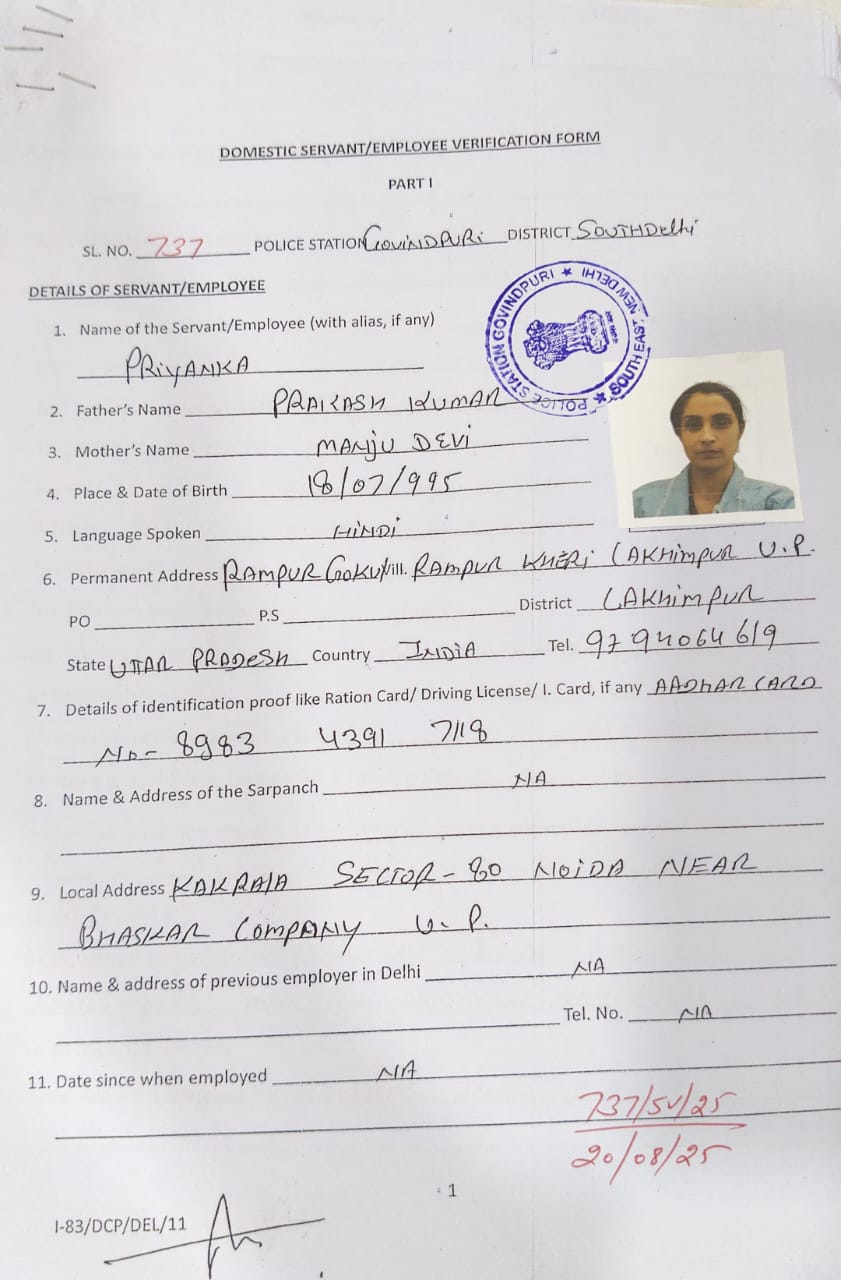 DOMESTIC SERVANT/EMPLOYEE VERIFICATION FORM
PART I
SL. NO. 737 POLICE STATION GOVINDPURI DISTRICT SOUTH Delhi
POLICE STATION GOVINDPURI ★ SOUTH EAST, NEW DELHI ★
DETAILS OF SERVANT/EMPLOYEE
1. Name of the Servant/Employee (with alias, if any)
PRIYANKA
2. Father's Name PRAKASH KUMAR
3. Mother's Name MANJU DEVI
4. Place & Date of Birth 18/07/995
5. Language Spoken HINDI
6. Permanent Address RAMPUR GOKUL Vill. RAMPUR KHERI LAKHIMPUR U.P.
PO P.S District LAKHIMPUR
State UTTAR PRADESH Country INDIA Tel. 9794064619
7. Details of identification proof like Ration Card/ Driving License/ I. Card, if any AADHAR CARD
No- 8983 4391 7118
8. Name & Address of the Sarpanch NA
9. Local Address SECTOR-80 NOIDA NEAR
BHASKAR COMPANY U.P.
10. Name & address of previous employer in Delhi NA
Tel. No. NA
11. Date since when employed NA
737/SV/25
20/08/25
1
I-83/DCP/DEL/11